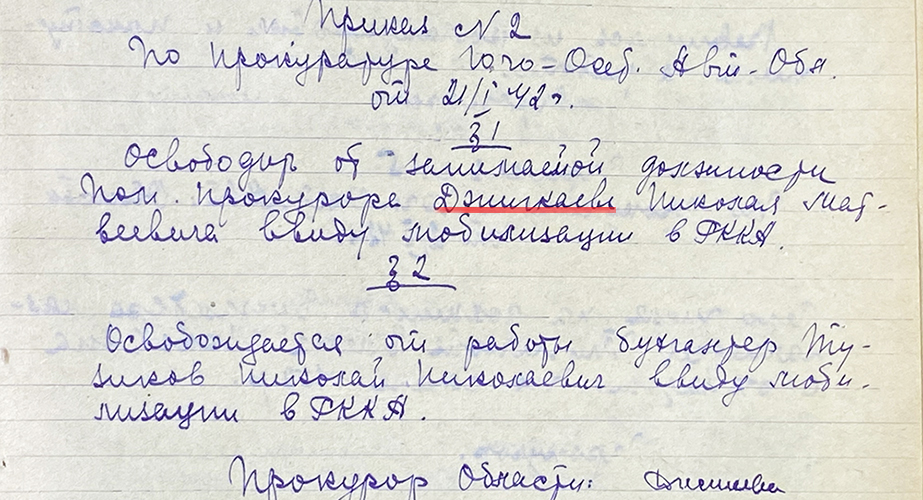 Приказ № 2
По Прокуратуре Юго-Осет. Авт. Обл.
от 21/I 42 г.
§ 1
Освободить от занимаемой должности
Пом. прокурора Джигкаева Николая Мат-
веевича ввиду мобилизации в РККА.
§ 2
Освобождается от работы бухгалтер Ту-
зиков Николай Николаевич ввиду моби-
лизации в РККА.
Прокурор Области: